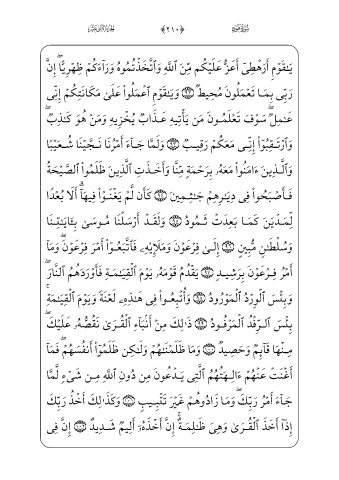 سورة هود ﴿٢١٠﴾ الجزء الثاني عشر
يَٰقَوْمِ أَرَهْطِىٓ أَعَزُّ عَلَيْكُم مِّنَ ٱللَّهِ وَٱتَّخَذْتُمُوهُ وَرَآءَكُمْ ظِهْرِيًّا ۖ إِنَّ
رَبِّى بِمَا تَعْمَلُونَ مُحِيطٌ ﴿٩٢﴾ وَيَٰقَوْمِ ٱعْمَلُوا۟ عَلَىٰ مَكَانَتِكُمْ إِنِّى
عَٰمِلٌ ۖ سَوْفَ تَعْلَمُونَ مَن يَأْتِيهِ عَذَابٌ يُخْزِيهِ وَمَنْ هُوَ كَٰذِبٌ ۖ
وَٱرْتَقِبُوٓا۟ إِنِّى مَعَكُمْ رَقِيبٌ ﴿٩٣﴾ وَلَمَّا جَآءَ أَمْرُنَا نَجَّيْنَا شُعَيْبًا
وَٱلَّذِينَ ءَامَنُوا۟ مَعَهُۥ بِرَحْمَةٍ مِّنَّا وَأَخَذَتِ ٱلَّذِينَ ظَلَمُوا۟ ٱلصَّيْحَةُ
فَأَصْبَحُوا۟ فِى دِيَٰرِهِمْ جَٰثِمِينَ ﴿٩٤﴾ كَأَن لَّمْ يَغْنَوْا۟ فِيهَآ ۗ أَلَا بُعْدًا
لِّمَدْيَنَ كَمَا بَعِدَتْ ثَمُودُ ﴿٩٥﴾ وَلَقَدْ أَرْسَلْنَا مُوسَىٰ بِـَٔايَٰتِنَا
وَسُلْطَٰنٍ مُّبِينٍ ﴿٩٦﴾ إِلَىٰ فِرْعَوْنَ وَمَلَإِي۟هِۦ فَٱتَّبَعُوٓا۟ أَمْرَ فِرْعَوْنَ ۖ وَمَآ
أَمْرُ فِرْعَوْنَ بِرَشِيدٍ ﴿٩٧﴾ يَقْدُمُ قَوْمَهُۥ يَوْمَ ٱلْقِيَٰمَةِ فَأَوْرَدَهُمُ ٱلنَّارَ ۖ
وَبِئْسَ ٱلْوِرْدُ ٱلْمَوْرُودُ ﴿٩٨﴾ وَأُتْبِعُوا۟ فِى هَٰذِهِۦ لَعْنَةً وَيَوْمَ ٱلْقِيَٰمَةِ ۚ
بِئْسَ ٱلرِّفْدُ ٱلْمَرْفُودُ ﴿٩٩﴾ ذَٰلِكَ مِنْ أَنۢبَآءِ ٱلْقُرَىٰ نَقُصُّهُۥ عَلَيْكَ ۖ
مِنْهَا قَآئِمٌ وَحَصِيدٌ ﴿١٠٠﴾ وَمَا ظَلَمْنَٰهُمْ وَلَٰكِن ظَلَمُوٓا۟ أَنفُسَهُمْ ۖ فَمَآ
أَغْنَتْ عَنْهُمْ ءَالِهَتُهُمُ ٱلَّتِى يَدْعُونَ مِن دُونِ ٱللَّهِ مِن شَىْءٍ لَّمَّا
جَآءَ أَمْرُ رَبِّكَ ۖ وَمَا زَادُوهُمْ غَيْرَ تَتْبِيبٍ ﴿١٠١﴾ وَكَذَٰلِكَ أَخْذُ رَبِّكَ
إِذَآ أَخَذَ ٱلْقُرَىٰ وَهِىَ ظَٰلِمَةٌ ۚ إِنَّ أَخْذَهُۥٓ أَلِيمٌ شَدِيدٌ ﴿١٠٢﴾ إِنَّ فِى